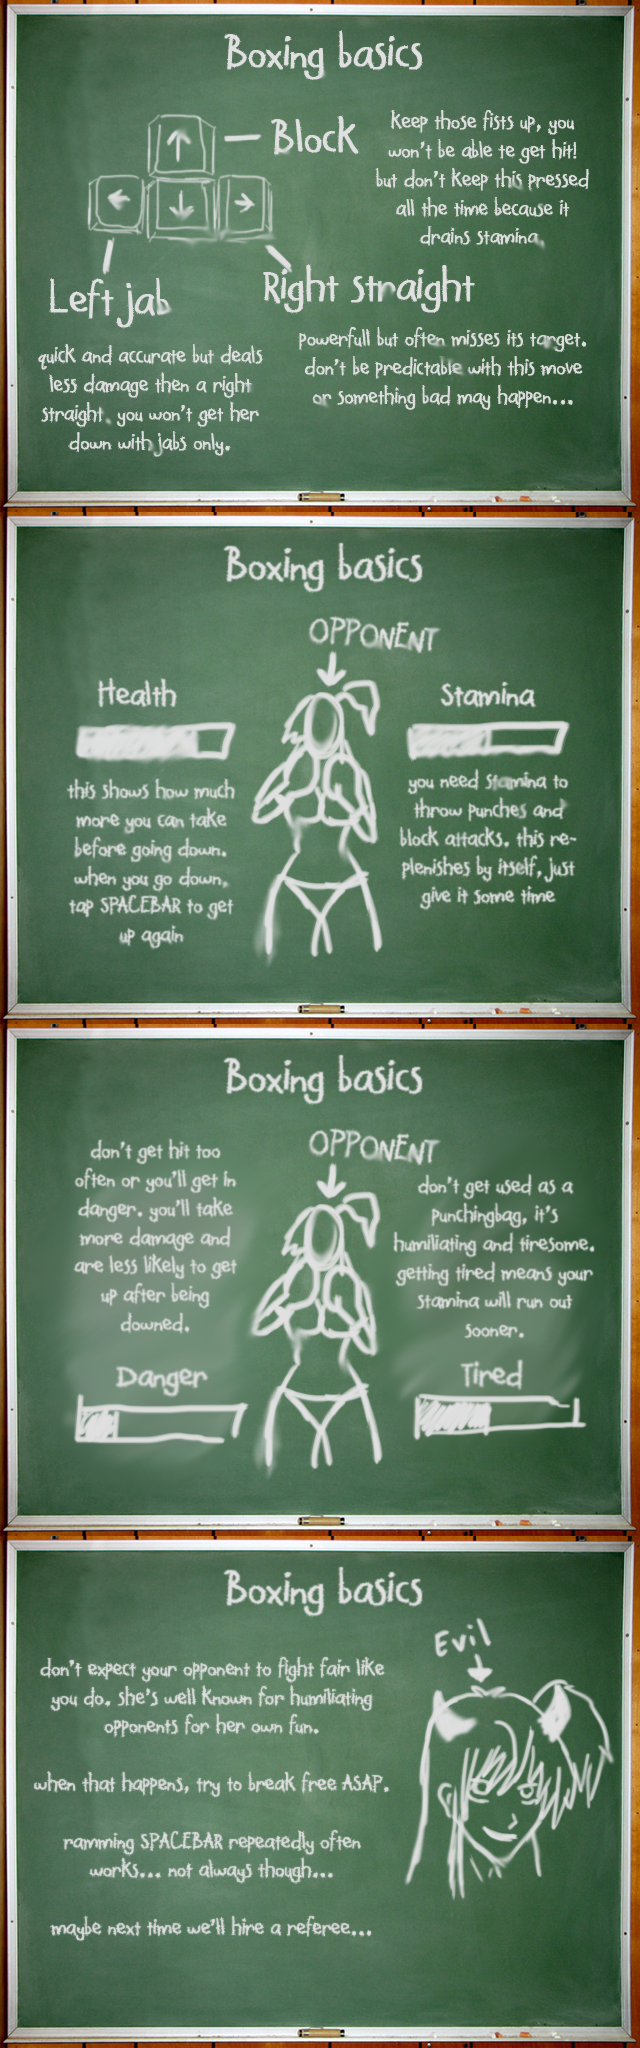 Boxing basics
Block
keep those fists up, you
won't be able te get hit!
but don't keep this pressed
all the time because it
drains stamina.
Left jab
quick and accurate but deals
less damage then a right
straight. you won't get her
down with jabs only.
Right straight
powerfull but often misses its target.
don't be predictable with this move
or something bad may happen...
Boxing basics
OPPONENT
Health
this shows how much
more you can take
before going down.
when you go down,
tap SPACEBAR to get
up again
Stamina
you need stamina to
throw punches and
block attacks. this re-
plenishes by itself, just
give it some time
Boxing basics
don't get hit too
often or you'll get in
danger. you'll take
more damage and
are less likely to get
up after being
downed.
Danger
OPPONENT
don't get used as a
punchingbag, it's
humiliating and tiresome.
getting tired means your
stamina will run out
sooner.
Tired
Boxing basics
don't expect your opponent to fight fair like
you do. she's well known for humiliating
opponents for her own fun.
when that happens, try to break free ASAP.
ramming SPACEBAR repeatedly often
works... not always though...
maybe next time we'll hire a referee...
Evil